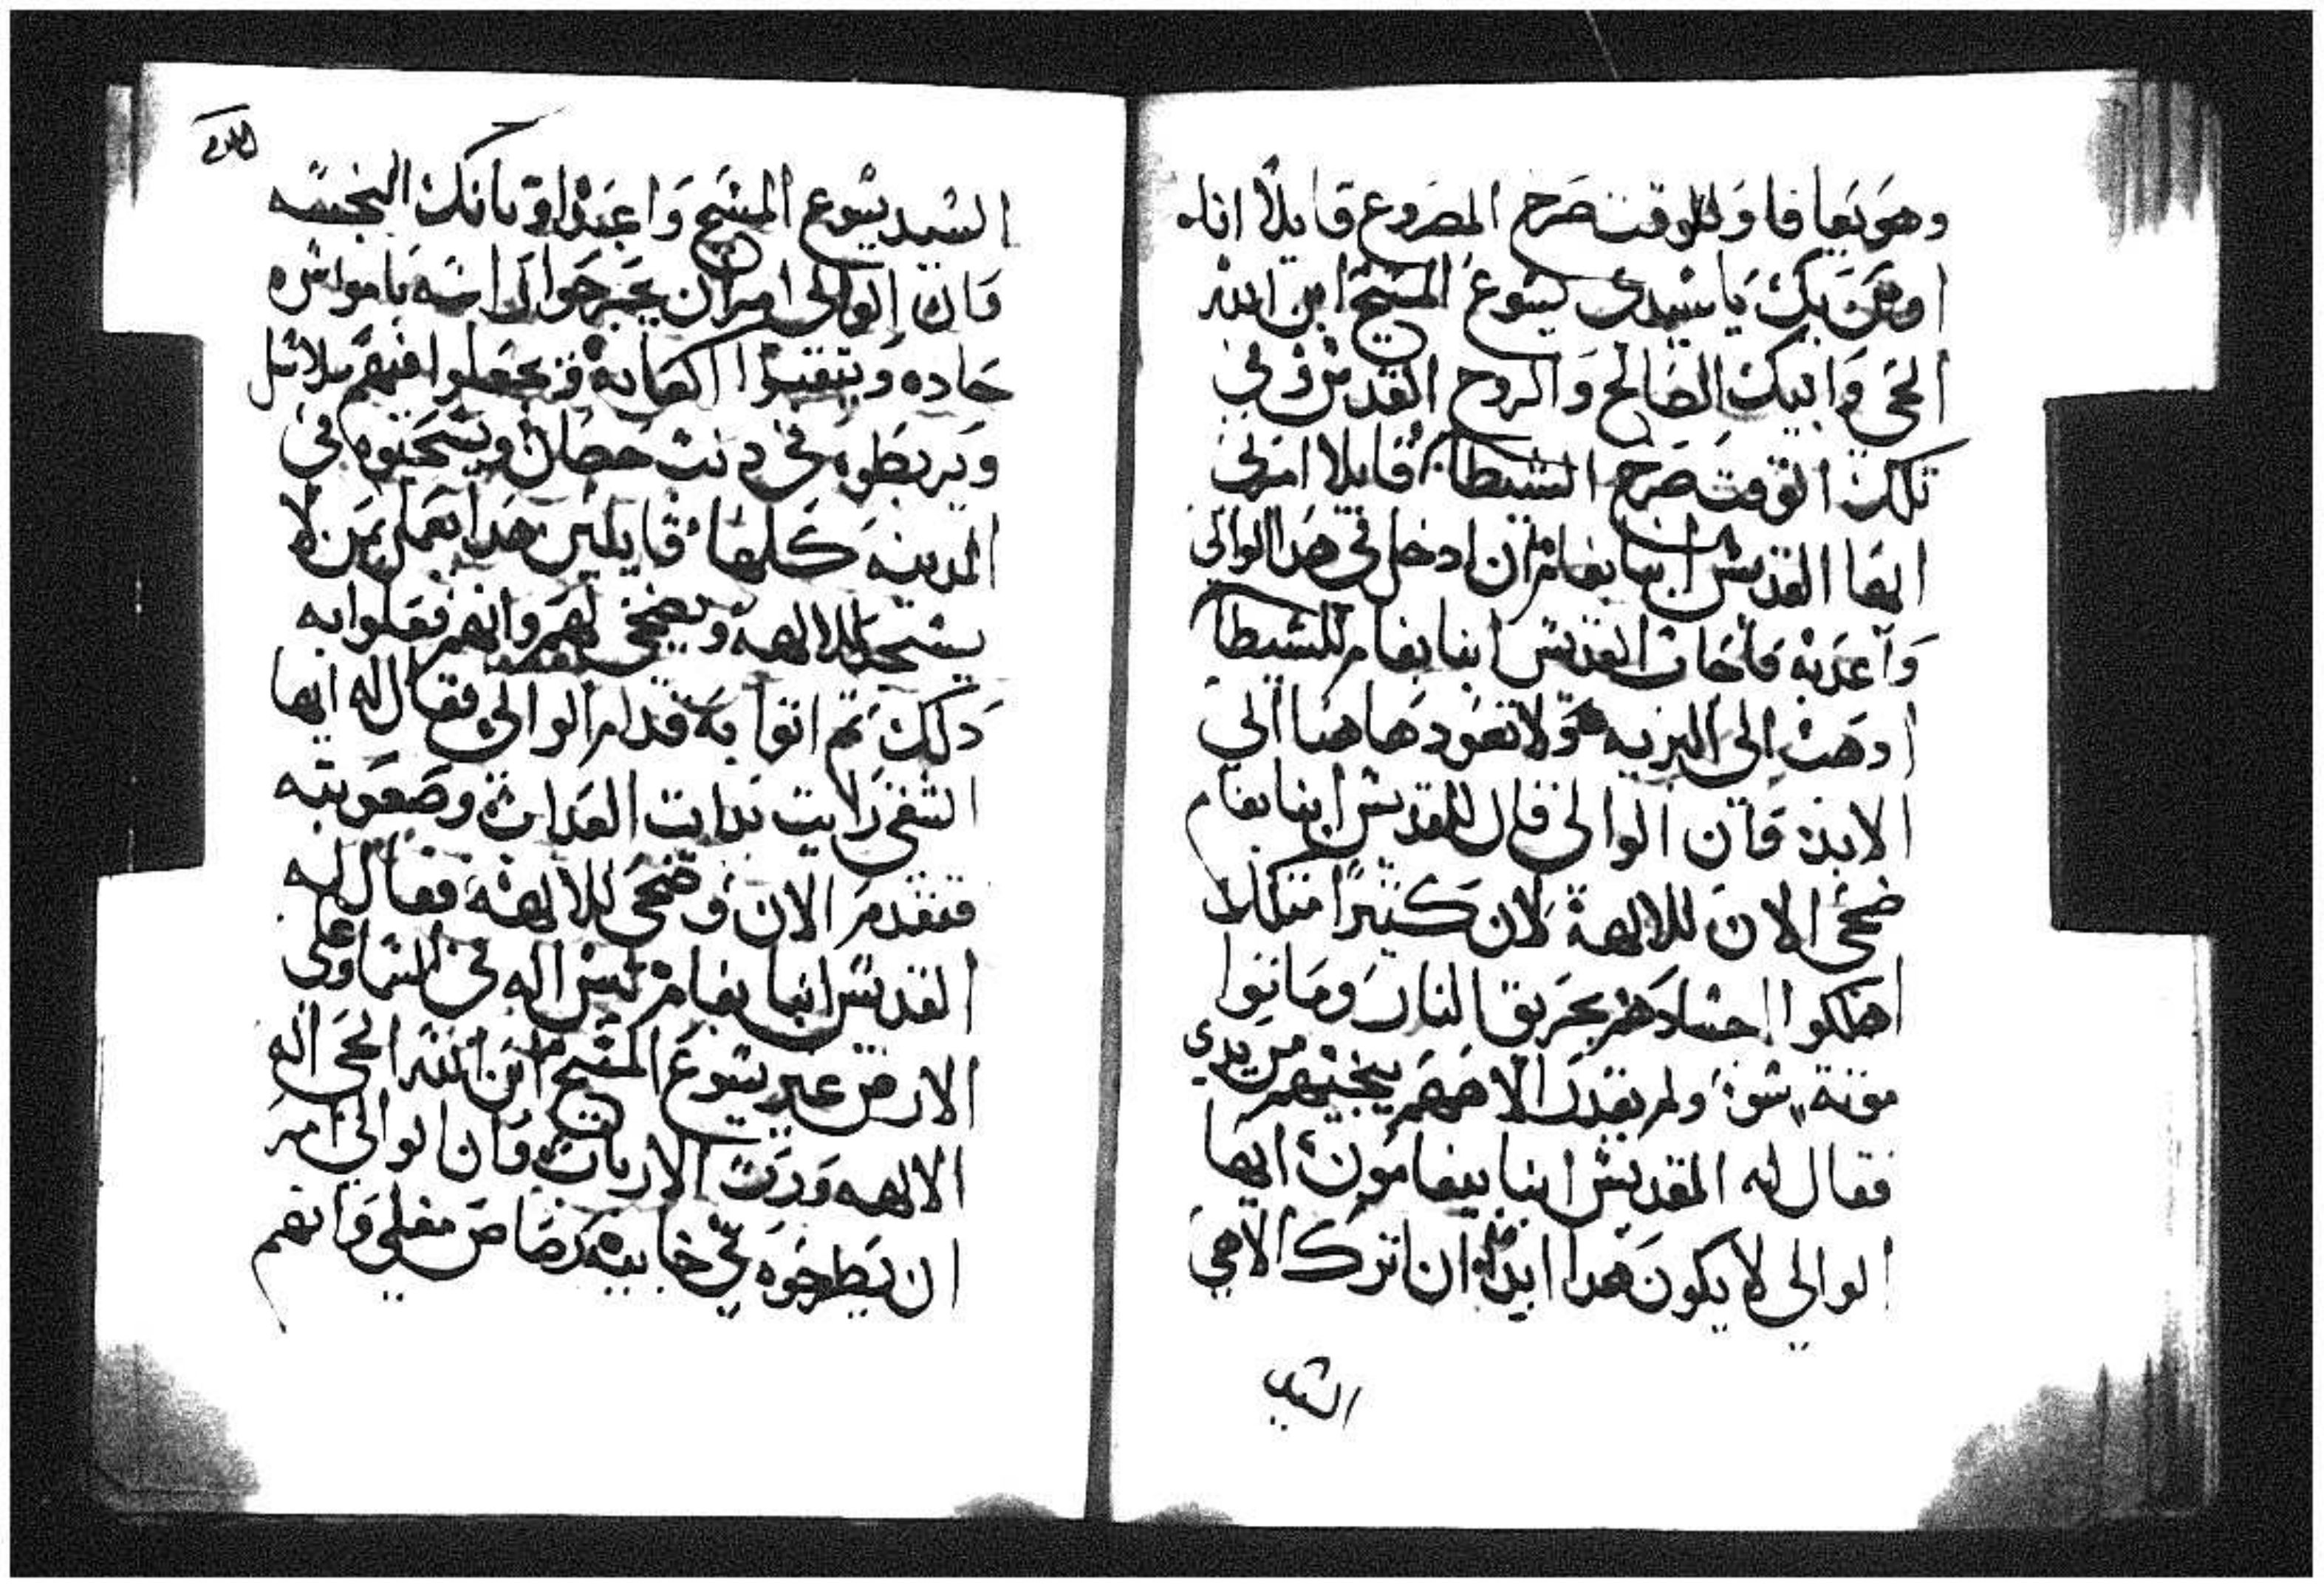 وهو يعافا وللوقت صرخ المصروع قايلا انا
اومن بك يا سيدي يسوع المسيح ابن الله
الحي وابيك الصالح والروح القدس وفي
تلك الوقت صرخ الشيطان قايلا امرني
ايها القديس انبا بفام ان ادخل في هدا الوالي
واعدبه فاجاب القديس انبا بفام للشيطان
ادهب الى البريه ولا تعود هاهنا الي
الابد فان الوالي قال للقديس انبا بفام
ضحي الان للالهة لان كثيرا مثلك
اهلكوا اجسادهم بحريق النار وماتوا
موتة سوء ولم يقدر الاههم ينجيهم من يدي
فقال له القديس انبا بيفامون ايها
الوالي لا يكون هدا ابدا ان اترك الاهي
السيد
السيد يسوع المسيح واعبد اوتانك النجسه
فان الوالي امر ان يجرحوا راسه بامواس
حاده ويتقبوا اكعابه ويجعلوا فيهم سلاسل
ويربطوه في دنب حصان ويسحبوه في
المدينه كلها قايلين هدا يعمل بمن لا
يسجد للالهة ويضحي لهم وانهم فعلوا به
دلك تم اتوا به قدام الوالي فقال له ايها
الشقي رايت بدايت العداب وصعوبته
فتقدم الان وضحي للالهة فقال له
القديس انبا بفام ليس اله في السما وعلى
الارض غير يسوع المسيح ابن الله الحي اله
الالهه ورب الارباب فان الوالي امر
ان يطرحوه في خابيه رصاص مغلي وانهم